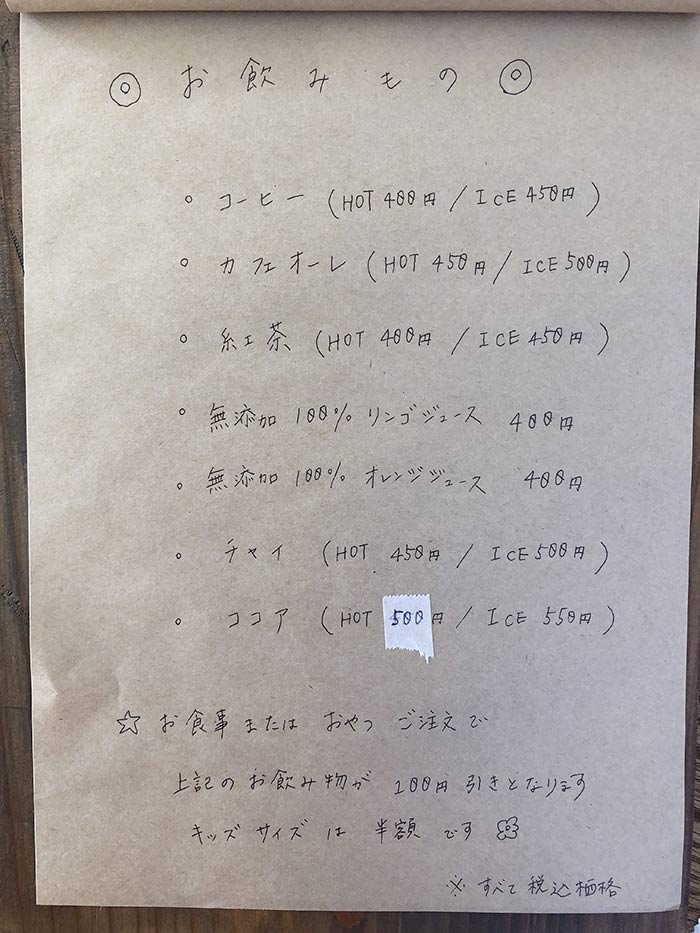 ◎ お飲みもの ◎
○ コーヒー (HOT 400円 / ICE 450円)
○ カフェオーレ (HOT 450円 / ICE 500円)
○ 紅茶 (HOT 400円 / ICE 450円)
○ 無添加 100% リンゴジュース 400円
○ 無添加 100% オレンジジュース 400円
○ チャイ (HOT 450円 / ICE 500円)
○ ココア (HOT 500円 / ICE 550円)
☆ お食事または おやつ ご注文で
上記のお飲み物が 100円引きとなります
キッズサイズは半額です
※ すべて税込価格